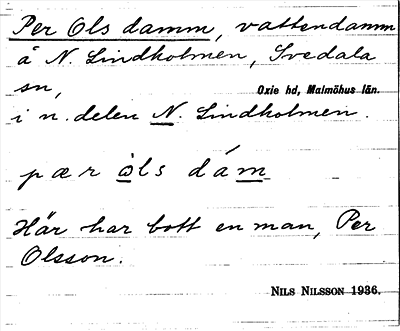 Per Ols damm, vattendamm
å N. Lindholmen, Svedala
sn,
Oxie hd, Malmöhus län.
i n. delen N. Lindholmen.
pær òls dám
Här har bott en man, Per
Olsson.
NILS NILSSON 1936.